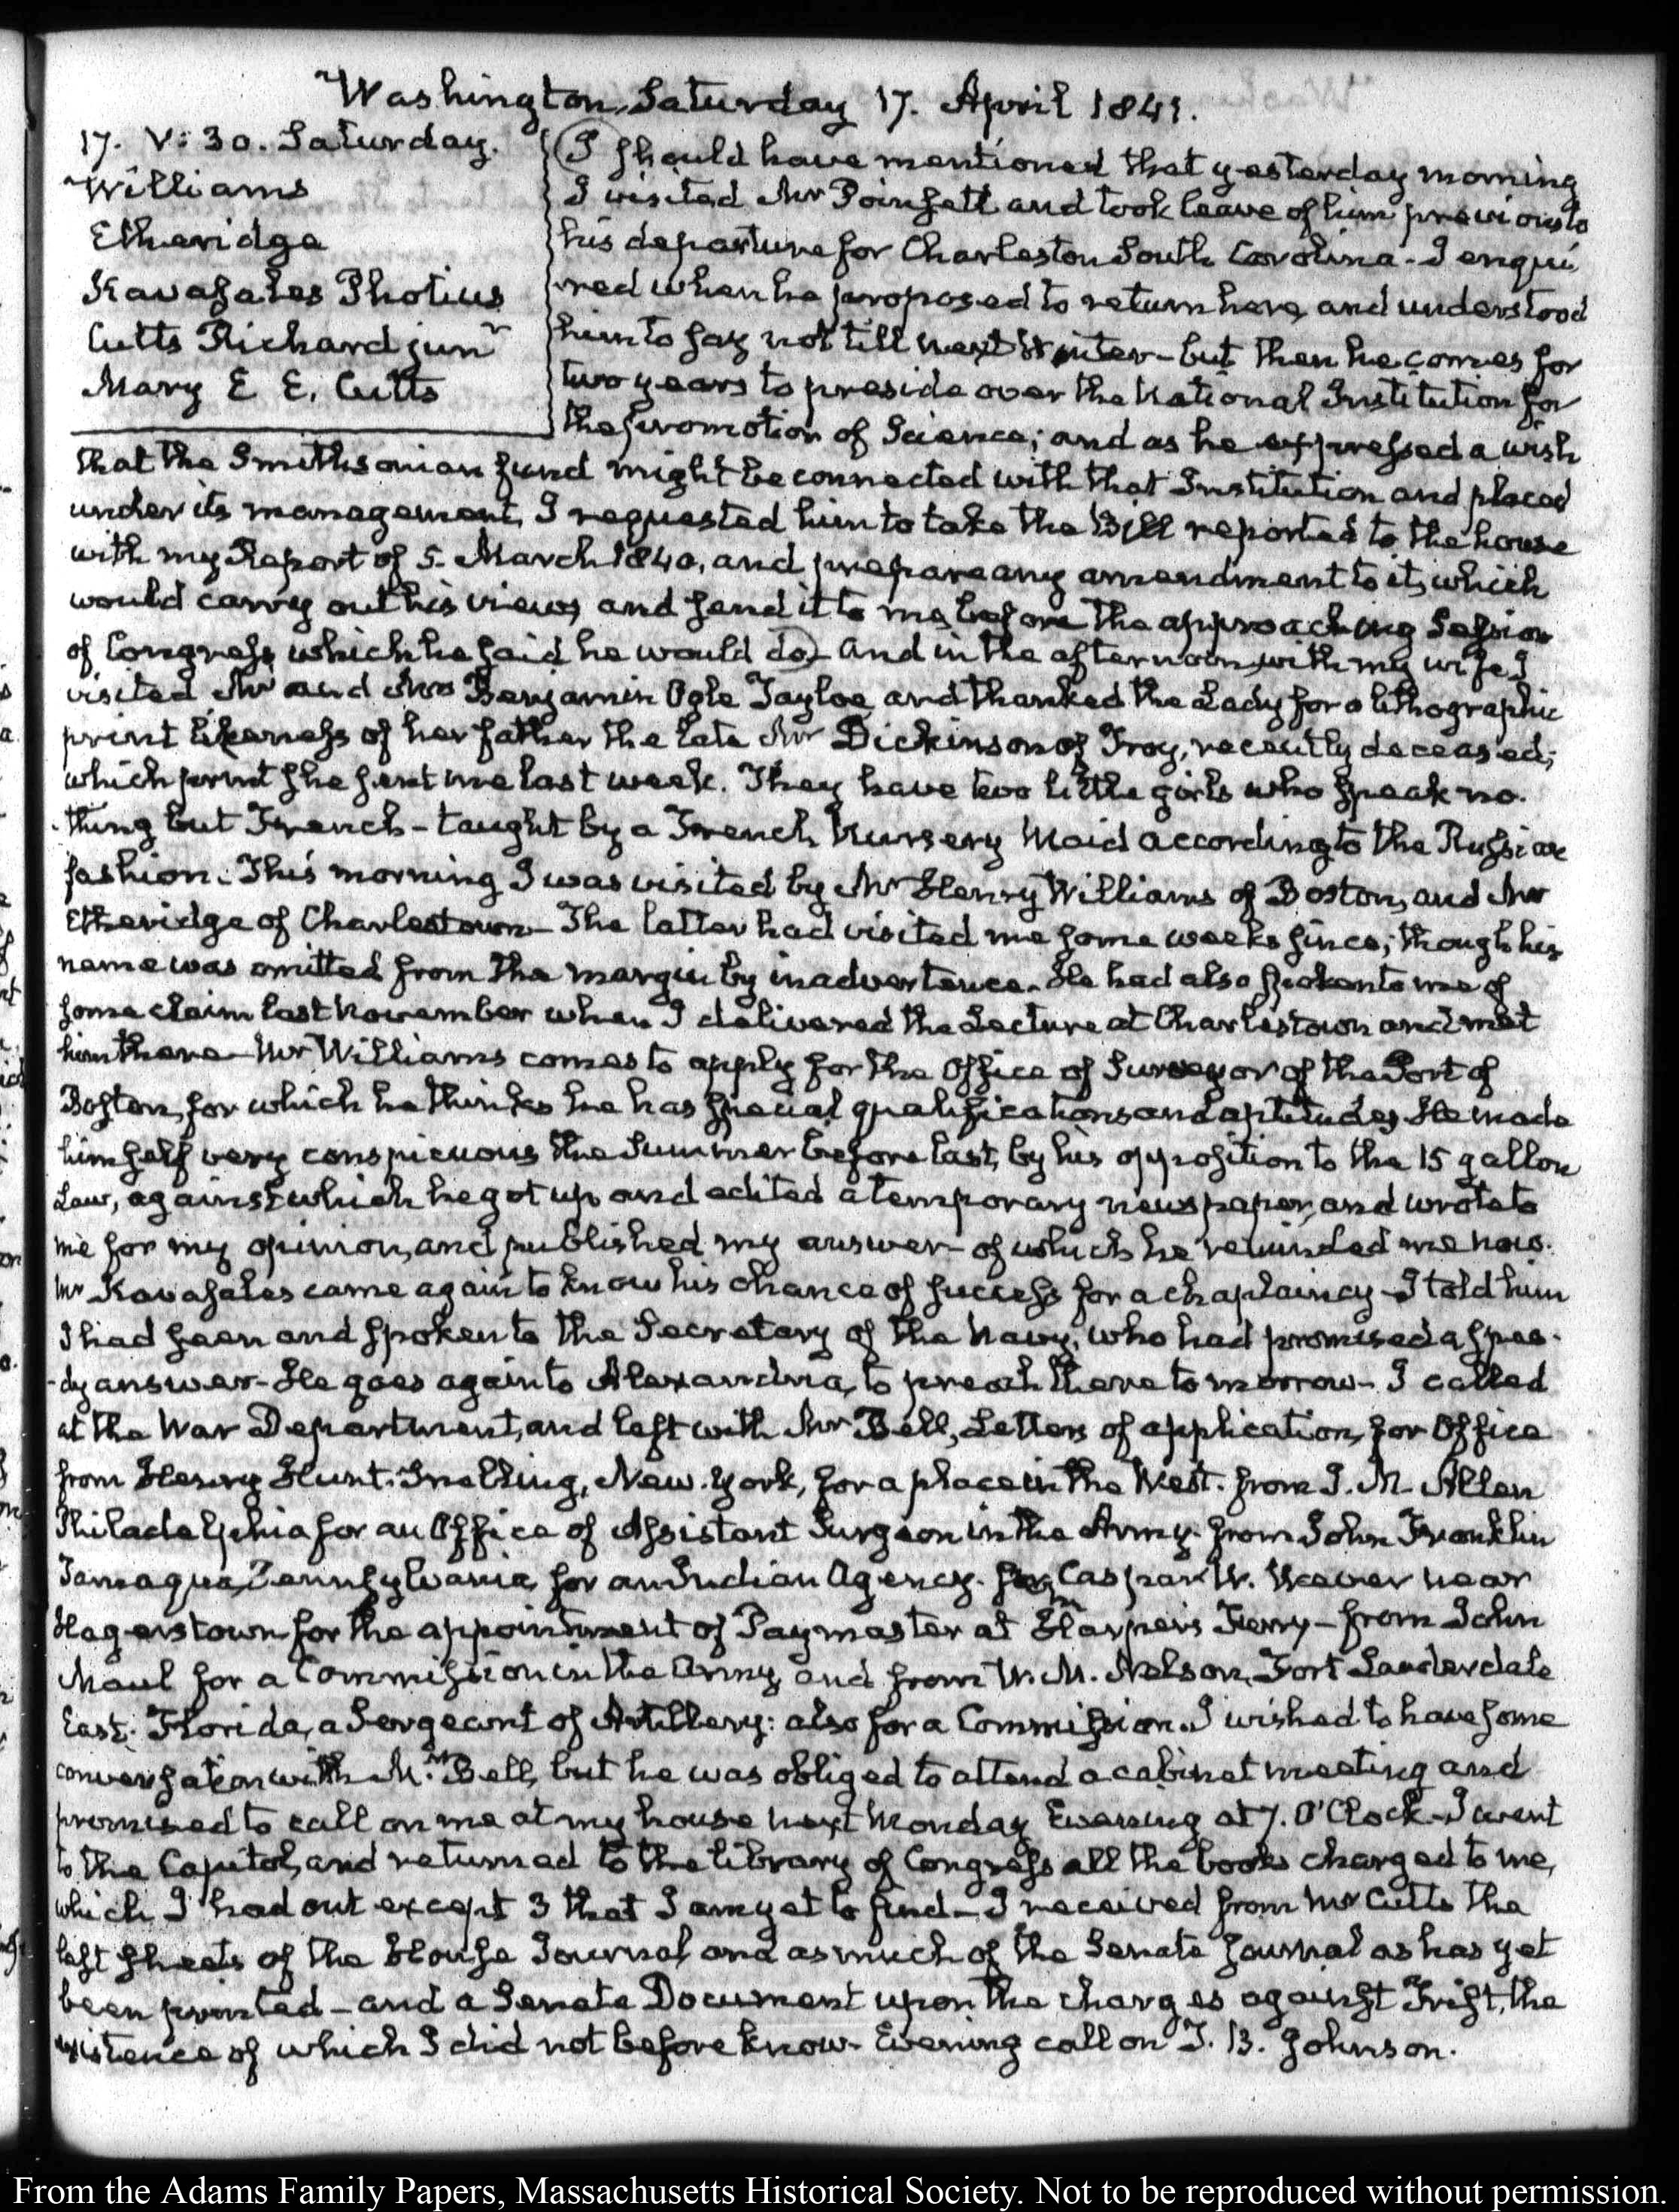 Washington, Saturday 17. April 1841.
17. V: 30. Saturday.
Williams
Etheridge
Kavasales Photius
Cutts Richard junr
Mary E E. Cutts
I should have mentioned that yesterday morning
I visited Mr Poinsett and took leave of him previous to
his departure for Charleston South Carolina - I enqui
red when he proposed to return here, and understood
him to say not till next Winter - but then he comes for
two years to preside over the National Institution for
the promotion of Science; and as he expressed a wish
that the Smithsonian fund might be connected with that Institution and placed
under its management, I requested him to take the Bill reported to the house
with my Report of 5. March 1840, and prepare any amendment to it, which
would carry out his views, and send it to me before the approaching Session
of Congress, which he said he would do - And in the afternoon, with my wife, I
visited Mr and Mrs Benjamin Ogle Tayloe, and thanked the Lady for a lithographic
print likeness of her father the late Mr Dickinson of Troy, recently deceased;
which print she sent me last week. They have two little girls who speak no-
thing but French - taught by a French Nursery Maid according to the Russian
fashion. This morning I was visited by Mr Henry Williams of Boston, and Mr
Etheridge of Charlestown - The latter had visited me some weeks since; though his
name was omitted from the margin by inadvertence. He had also spoken to me of
some claim last November when I delivered the Lecture at Charlestown and met
him there - Mr Williams comes to apply for the Office of Surveyor of the Port of
Boston, for which he thinks he has special qualifications and aptitudes. He made
himself very conspicuous the Summer before last, by his opposition to the 15 gallon
Law, against which he got up and edited a temporary newspaper, and wrote to
me for my opinion, and published my answer - of which he reminded me now.
Mr Kavasales came again to know his chance of success for a chaplaincy - I told him
I had seen and spoken to the Secretary of the Navy, who had promised a spee-
-dy answer - He goes again to Alexandria, to preach there to morrow - I called
at the War Department, and left with Mr Bell, Letters of application, for Office
from Henry Hunt Snelling, New. York, for a place in the West. from J. M. Allen
Philadelphia for an Office of Assistant Surgeon in the Army. from John Franklin
Tamaqua, Pennsylvania, for an Indian Agency. from Caspar W. Weaver near
Hagerstown for the appointment of Paymaster at Harper's Ferry - from John
Maul for a Commission in the Army, and from W. M. Nelson, Fort Lauderdale
East. Florida, a Sergeant of Artillery: also for a Commission. I wished to have some
conversation with Mr. Bell, but he was obliged to attend a cabinet meeting and
promised to call on me at my house next Monday Evening at 7. O'Clock - I went
to the Capitol, and returned to the library of Congress all the books charged to me,
which I had out except 3 that I am yet to find - I received from Mr Cutts the
last sheets of the House Journal and as much of the Senate Journal as has yet
been printed - and a Senate Document upon the charges against Trist, the
existence of which I did not before know - Evening call on T. B. Johnson.
From the Adams Family Papers, Massachusetts Historical Society. Not to be reproduced without permission.